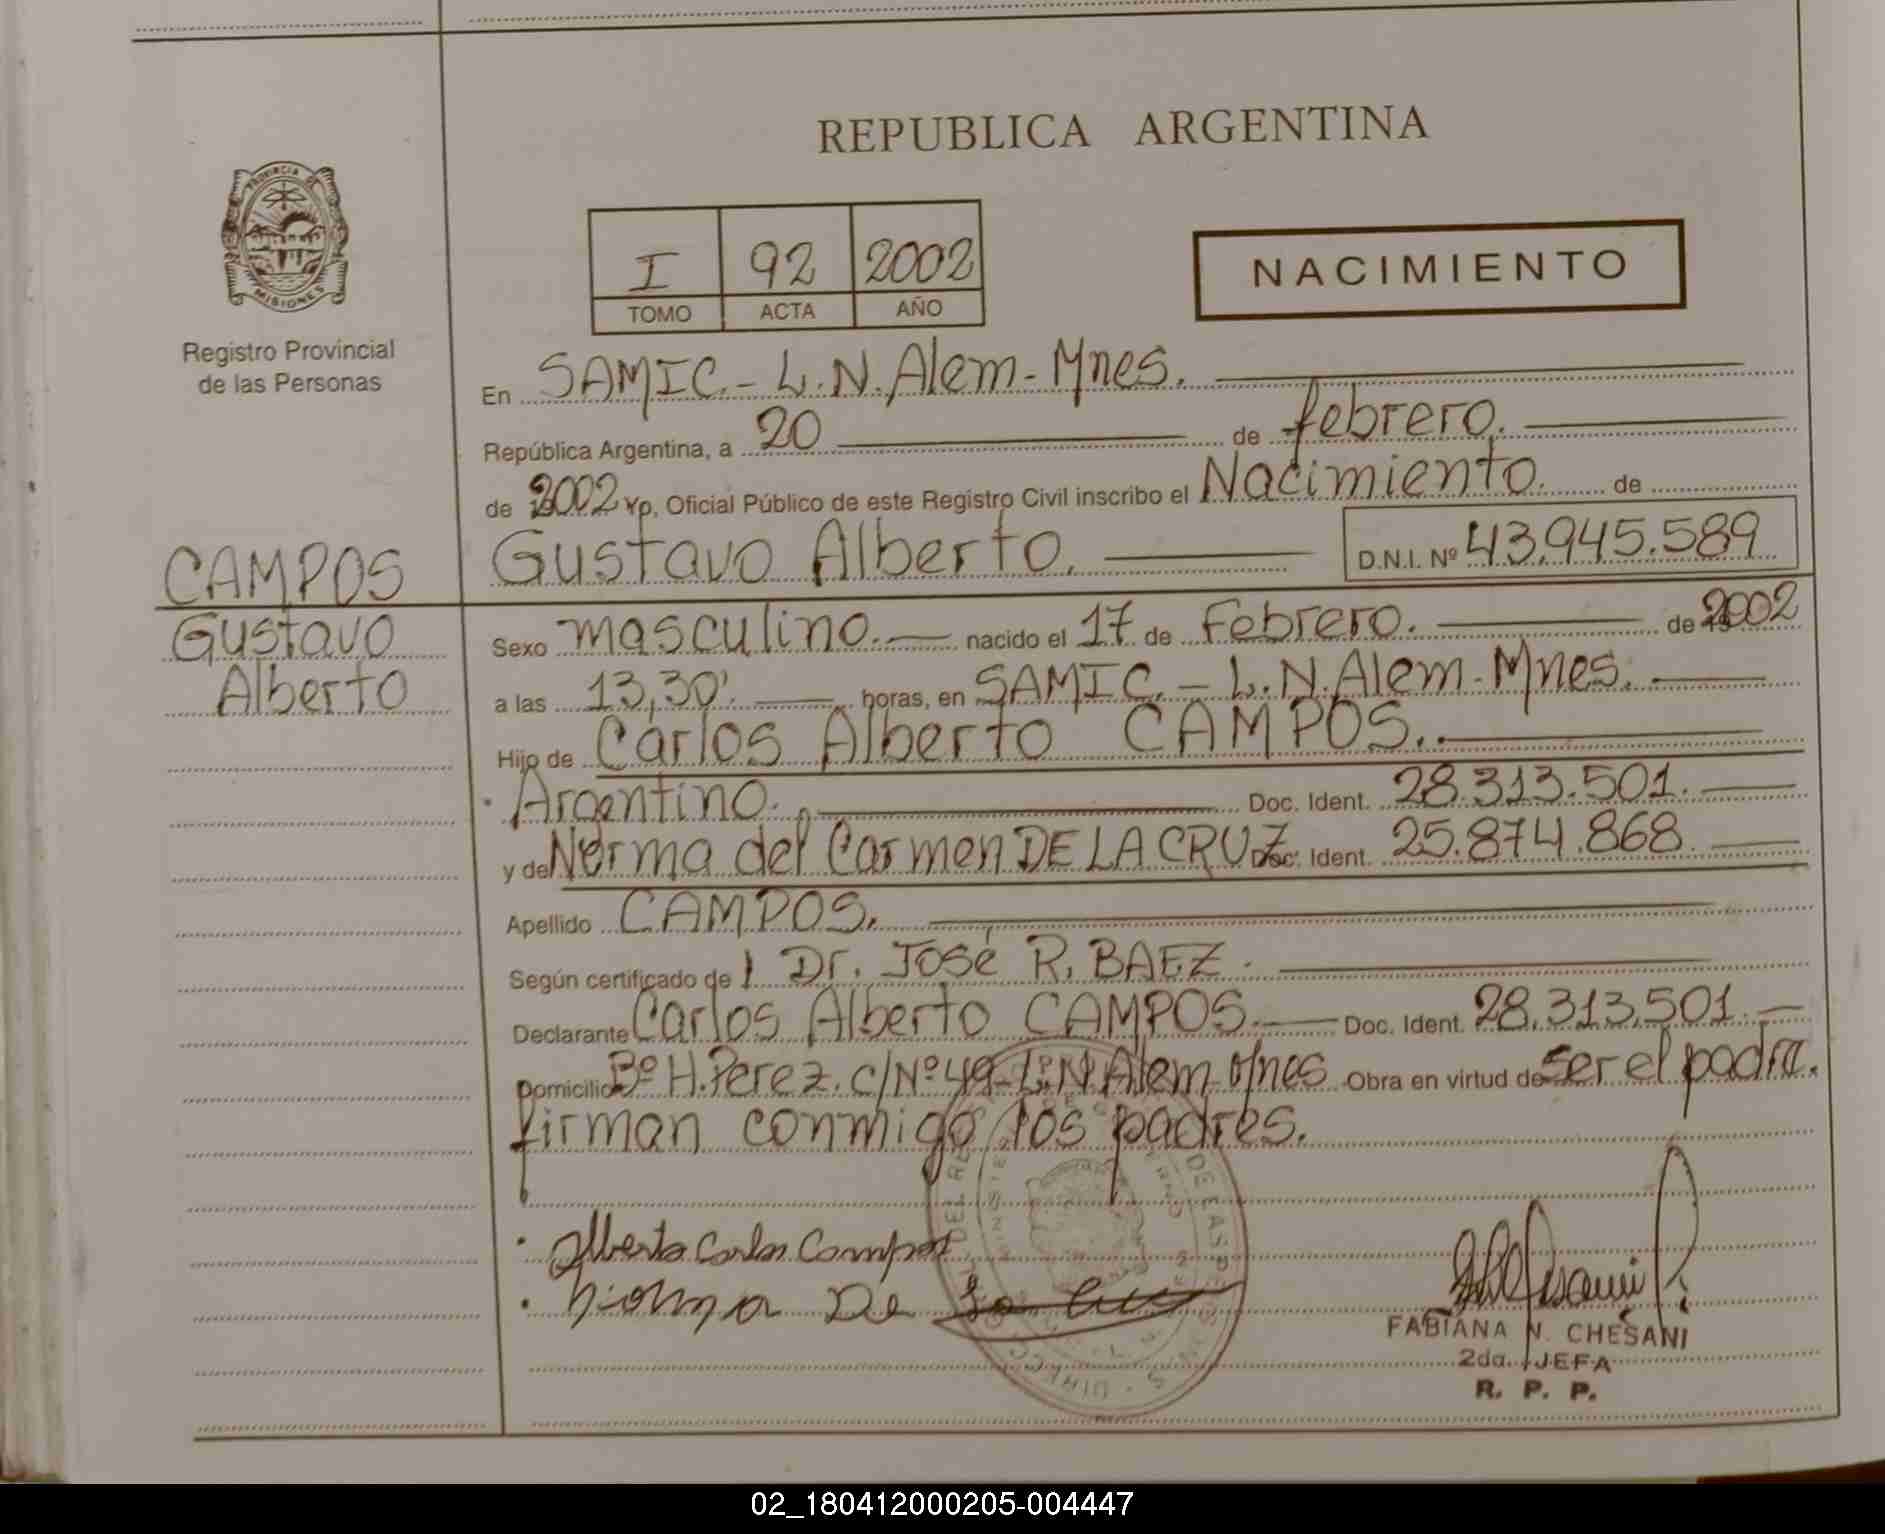 REPUBLICA ARGENTINA
PROVINCIA DE
MISIONES
Registro Provincial
de las Personas
I 92 2002
TOMO ACTA AÑO
NACIMIENTO
En SAMIC.- L.N.Alem-Mnes.
República Argentina, a 20 de febrero.
de 2002 Yo, Oficial Público de este Registro Civil inscribo el Nacimiento. de
CAMPOS
Gustavo
Alberto
Gustavo Alberto. D.N.I. Nº 43.945.589
Sexo masculino. nacido el 17 de Febrero. de 2002
a las 13,30'. horas, en SAMIC.- L.N.Alem-Mnes.
Hijo de Carlos Alberto CAMPOS.
Argentino. Doc. Ident. 28.313.501.
y de Norma del Carmen DE LA CRUZ Doc. Ident. 25.874.868.
Apellido CAMPOS.
Según certificado de l Dr. José R. BAEZ.
Declarante Carlos Alberto CAMPOS. Doc. Ident. 28.313.501.
Domicilio Bº H.Perez. c/Nº49-L.N.Alem-Mnes Obra en virtud de ser el padre.
firman conmigo los padres.
Alberto Carlos Campos
Norma De La Cruz
FABIANA N. CHESANI
2da. JEFA
R. P. P.
02_180412000205-004447